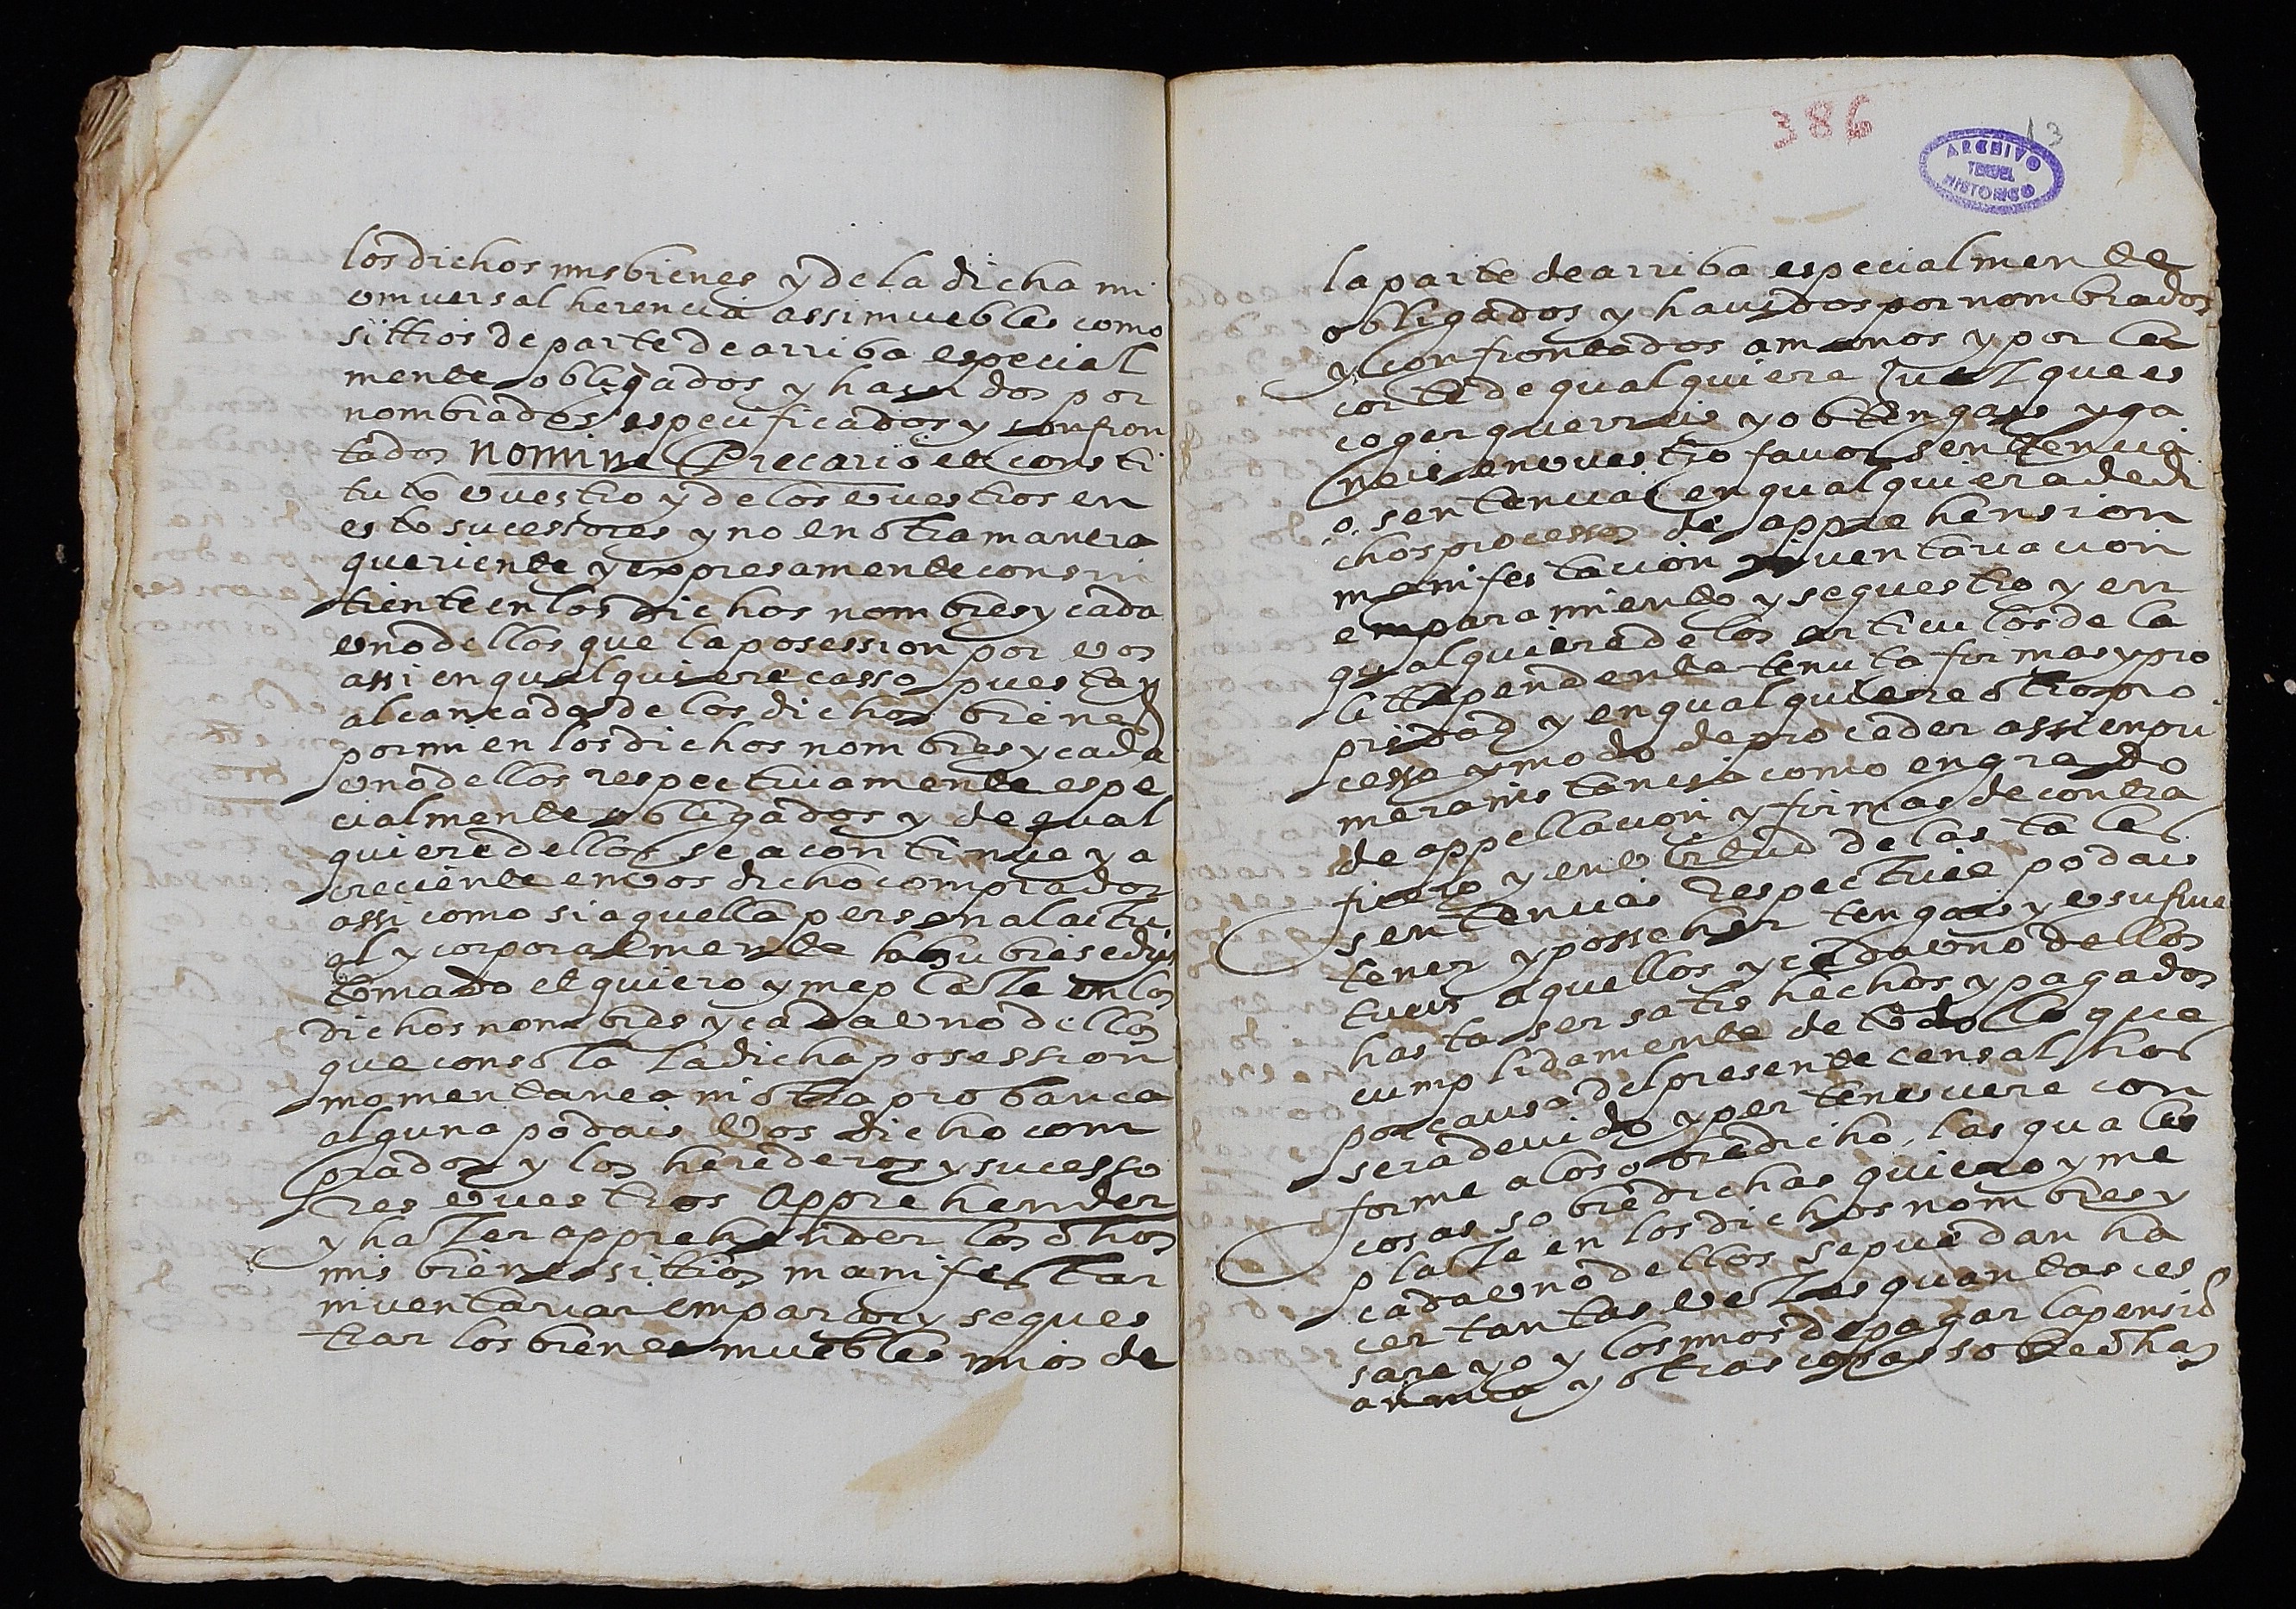 los dichos mis bienes y de la dicha mi
vniuersal herencia assi muebles como
sittios de parte de arriba especial
mente obligados y hauidos por
nombrados especificados y confron
tados nomine Precario et consti
tuto vuestro y de los vuestros en
esto sucessores y no en otra manera
queriente y expresamente consin
tiente en los dichos nombres y cada
vno dellos que la posession por vos
assi en qualquiere casso puesta y
alcancada de los dichos bienes
por mi en los dichos nombres y cada
vno dellos respectiuamente espe
cialmente obligados y de qual
quiere dellos se a continue y a
creciente en vos dicho comprador
assi como si aquella personal actu
al y corporalmente hubiesedys
tomado et quiero y me plaze en los
dichos nombres y cada vno dellos
que con sola la dicha posession
momentanea ni otra probanca
alguna podais vos dicho com
prador y los herederos y sucesso
res vuestros apprehender
y hazer apprehender los dhos
mis bienes sittios manifestar
inuentariar emparar y seques
trar los bienes muebles mios de
386
13
ARCHIVO
TERUEL
HISTORICO
la parte de arriba especialmente
obligados y hauidos por nombrados
y confrontados a manos y por la
corte de qualquiere Juez que es
coger querreis y obtengais y ga
neis en vuestro fauor sentencia
o sentencias en qualquiera de di
chos processos de apprehension
manifestacion inuentariacion
emparamiento y sequestro y en
qualquiere de los articulos de la
lite pendente tenuta firmas y pro
priedad y en qualquiere otro pro
cesso y modo de proceder assi en pri
mera instancia como en grado
de appellacion y firmas de contra
fuero y en virtud de las tales
sentencias respectiue podais
tener y posseher tengais y vsufruc
tueis aquellos y cada vno dellos
hasta ser satisfechos y pagados
cumplidamente de todo lo que
por causa del presente censal hos
sera deuido y pertenesciere con
forme a lo sobredicho, las quales
cosas sobredichas quiero y me
plaze en los dichos nombres y
cada vno dellos se puedan ha
cer tantas vezes quantas ces
sare yo y los mios de pagar la pensio
annua y otras cosas sobredhas